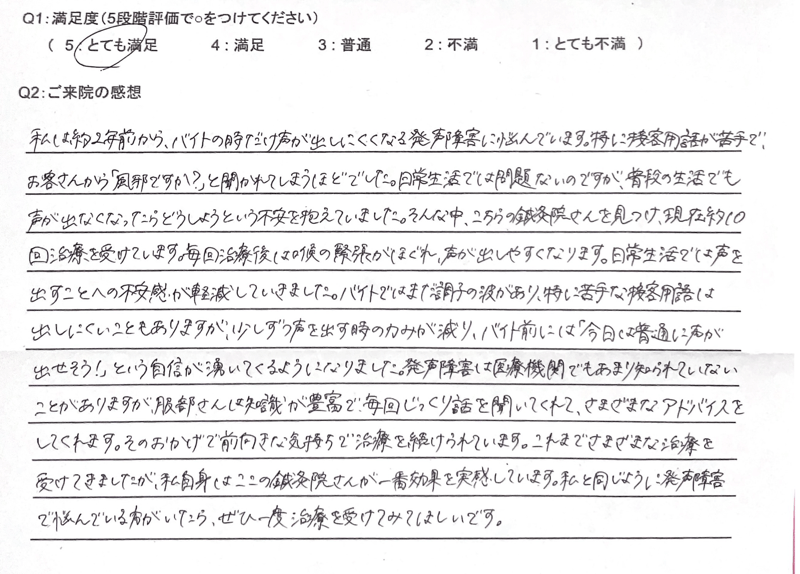 Q1:満足度(5段階評価で○をつけてください)
( 5:とても満足 4:満足 3:普通 2:不満 1:とても不満 )
Q2:ご来院の感想
私は約2年前から、バイトの時だけ声が出しにくくなる発声障害に悩んでいます。特に接客用語が苦手で、
お客さんから「風邪ですか?」と聞かれてしまうほどでした。日常生活では問題ないのですが、普段の生活でも
声が出なくなったらどうしようという不安を抱えていました。そんな中、こちらの鍼灸院さんを見つけ、現在約10
回治療を受けています。毎回治療後は喉の緊張がほぐれ、声が出しやすくなります。日常生活では声を
出すことへの不安感が軽減していきました。バイトではまだ調子の波があり、特に苦手な接客用語は
出しにくいこともありますが、少しずつ声を出す時の力みが減り、バイト前には「今日は普通に声が
出せそう!」という自信が湧いてくるようになりました。発声障害は医療機関でもあまり知られていない
ことがありますが、服部さんは知識が豊富で、毎回じっくり話を聞いてくれて、さまざまなアドバイスを
してくれます。そのおかげで前向きな気持ちで治療を続けられています。これまでさまざまな治療を
受けてきましたが、私自身はここの鍼灸院さんが一番効果を実感しています。私と同じように発声障害
で悩んでいる方がいたら、ぜひ一度治療を受けてみてほしいです。